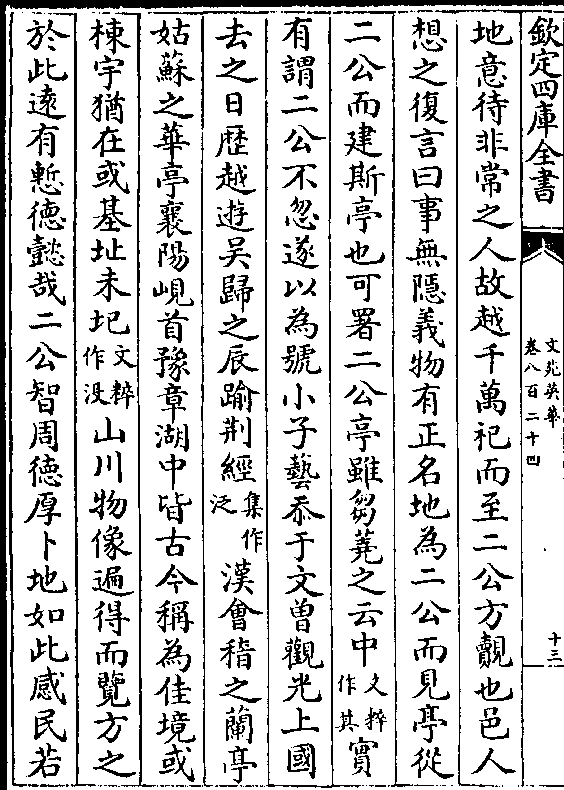 欽定四庫全書
文苑英華
卷八百二十四
十三
地意待非常之人故越千萬祀而至二公方覿也邑人
想之復言曰事無隱義物有正名地為二公而見亭從
二公而建斯亭也可署二公亭雖芻蕘之云中文粹作其實
有謂二公不忽遂以為號小子藝忝于文曾觀光上國
去之日歴越遊吴歸之辰踰荆經集作泛漢會稽之蘭亭
姑蘇之華亭襄陽峴首豫章湖中皆古今稱為佳境或
棟宇猶在或基址未圮文粹作没山川物像遍得而覽方之
於此遠有慙德懿哉二公智周德厚卜地如此感民若